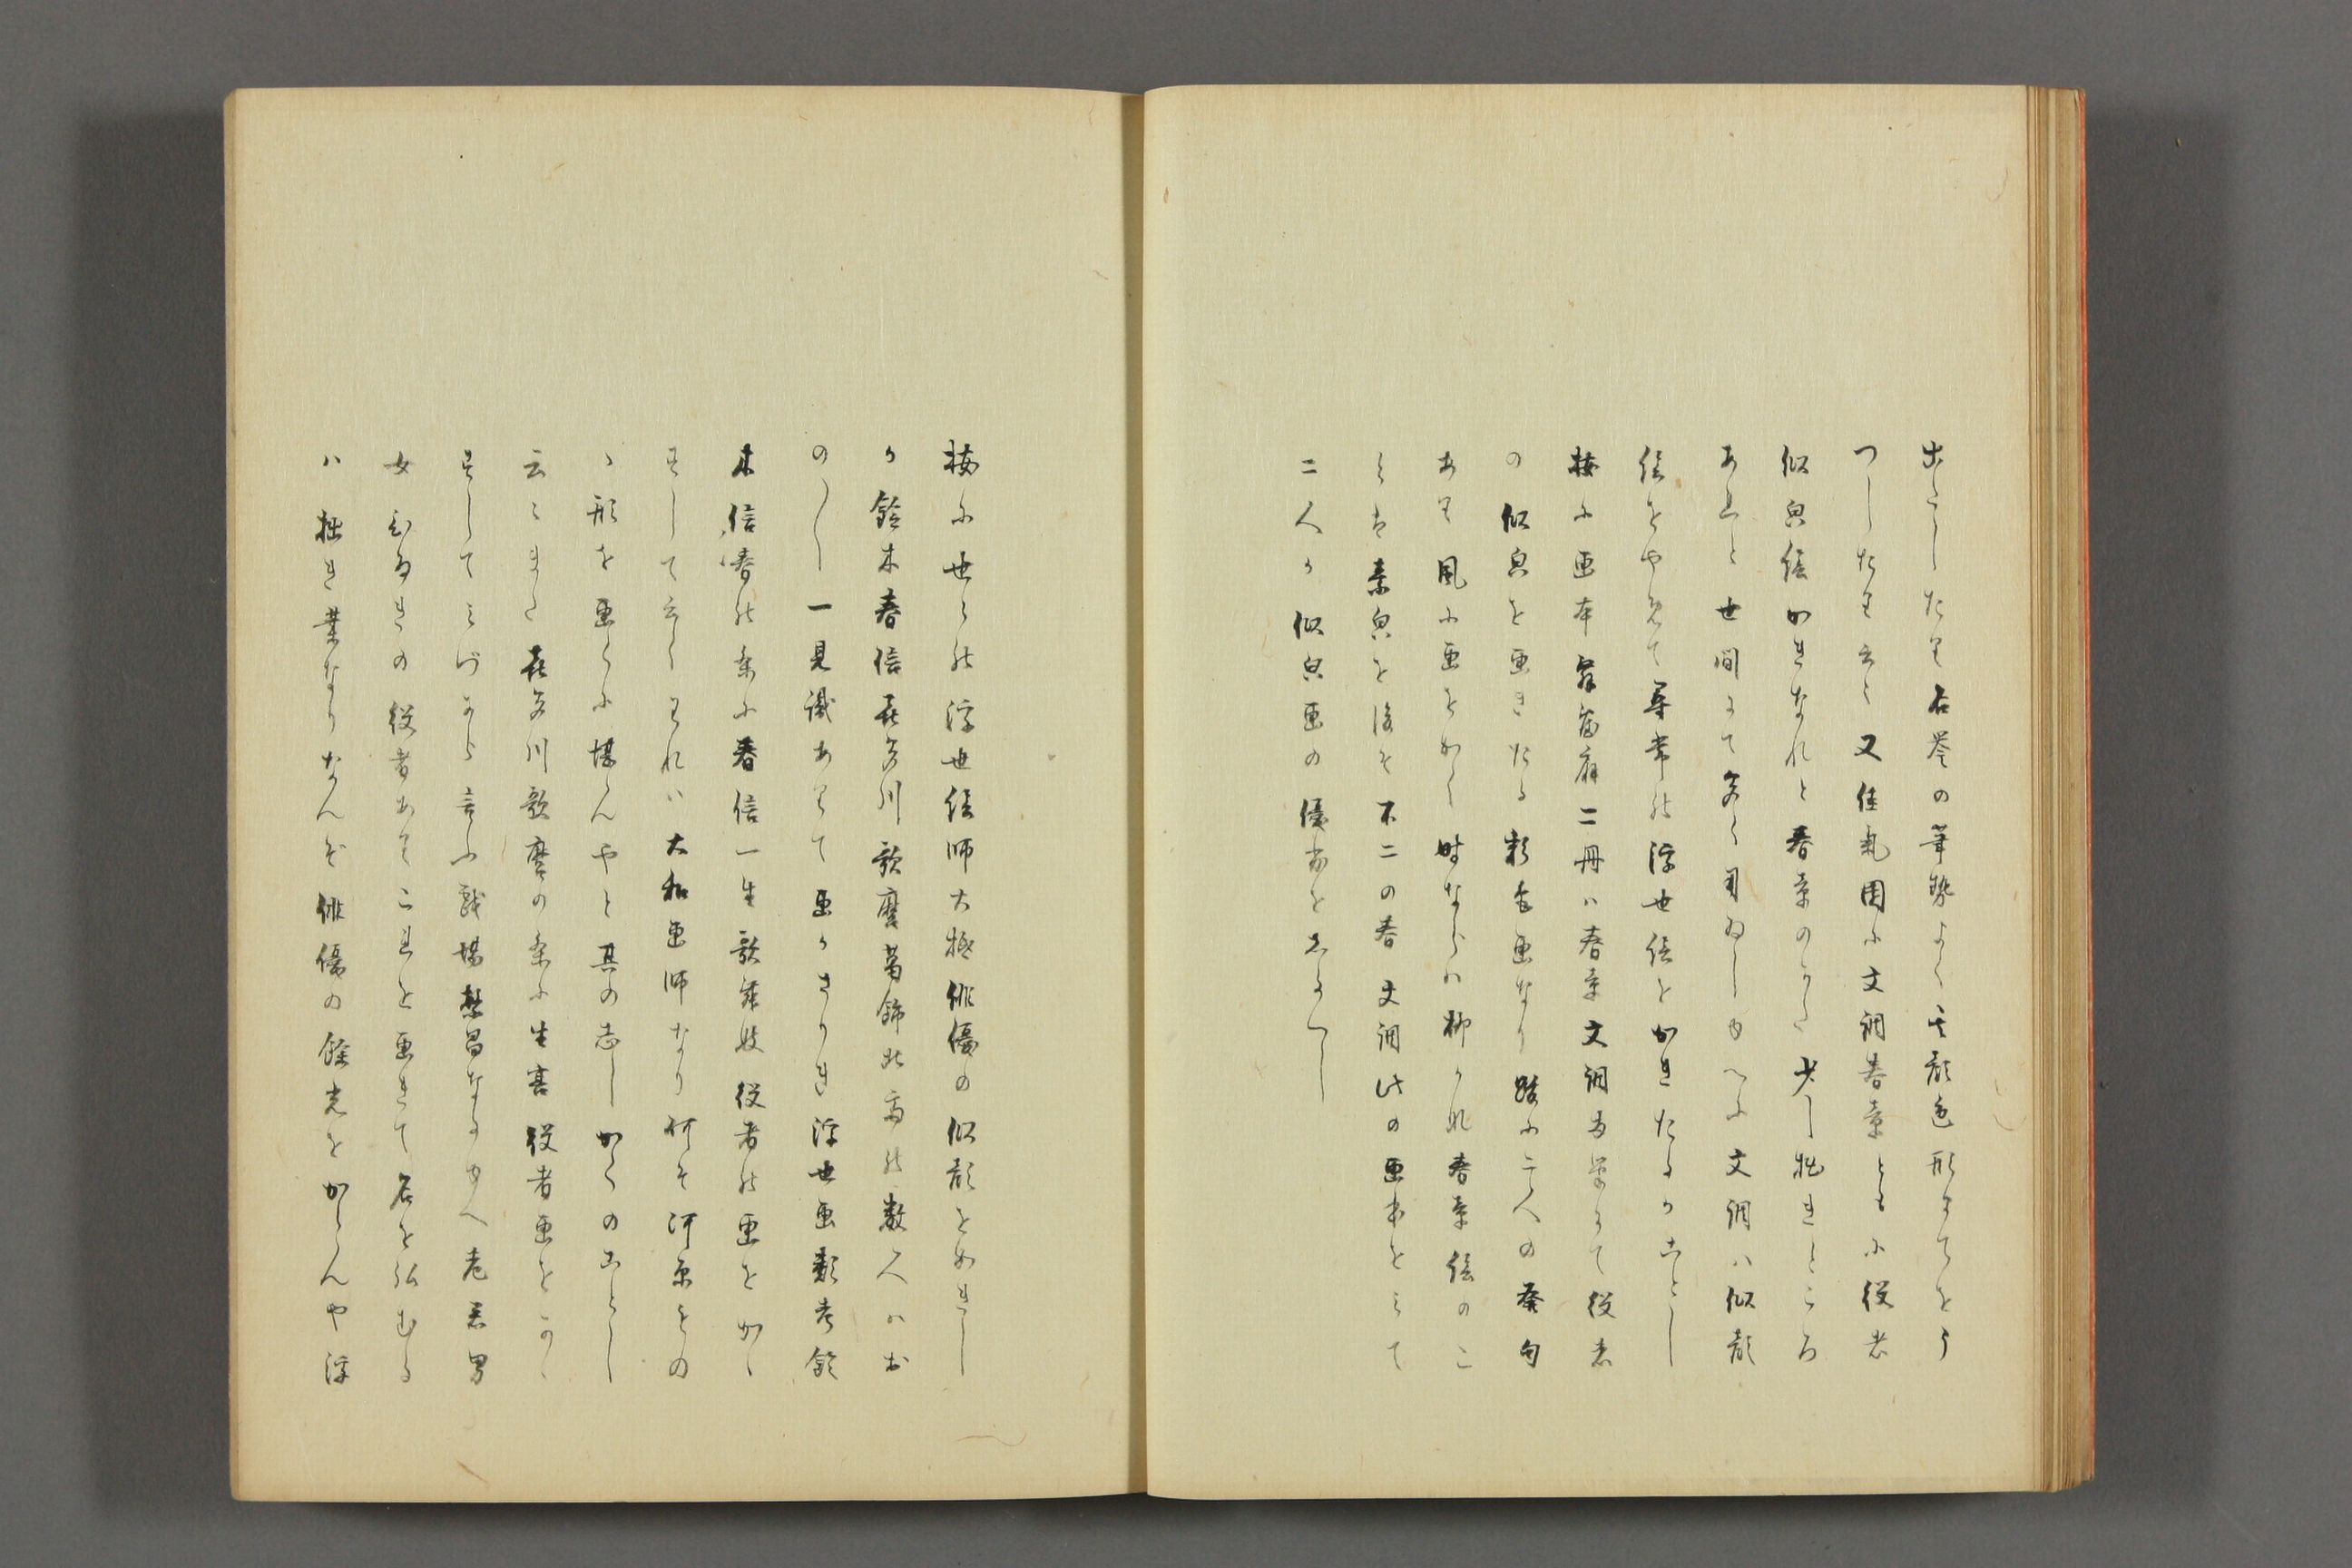 出たしたり名誉の筆勢よく其顔色形までをう
つしたり云々又佳気困に文調春章ともに役者
似皃絵かきなれと春章のかた少し拙きところ
あれと世間にて多く用ゐしゆへに文調ハ似顔
絵をやめて尋常の浮世絵をかきたるかことし
按に画本舞台扇二冊ハ春章文調両筆にて役者
の似皃を画きたる彩色画なり跋に二人の発句
あり風に画をかく時ならハ柳かれ春章絵のこ
とは素皃を後そ不二の春文調此の画本をみて
二人か似皃画の優劣をしるへし
按に世々の浮世絵師大概俳優の似顔をゑかきし
か鈴木春信喜多川歌麿葛飾北斎の数人ハお
のゝゝ一見識ありて画かさりき浮世画類考鈴
木信春の条に春信一生歌舞妓役者の画をかゝ
すして云くわれハ大和画師なり何そ河原ものゝ
形を画くに堪んやと其の志しかくのことし
云々また喜多川歌麿の条に生涯役者画をかゝ
すしてみつから言ふ戯場繁昌なるゆへ老若男
女ひゐきの役者ありこれを画きて名を弘むる
ハ拙き業なりなんそ俳優の餘光をからんや浮